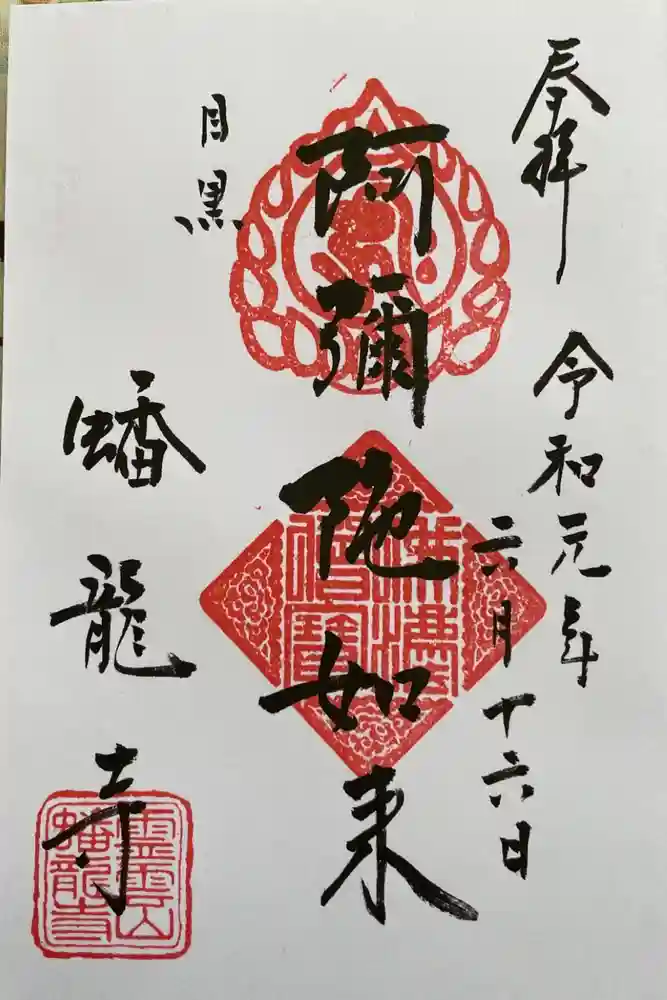 奉拝
令和元年
六月十六日
阿彌陀如来
目黒
蟠龍寺
佛法僧寳
霊雲山
蟠龍寺